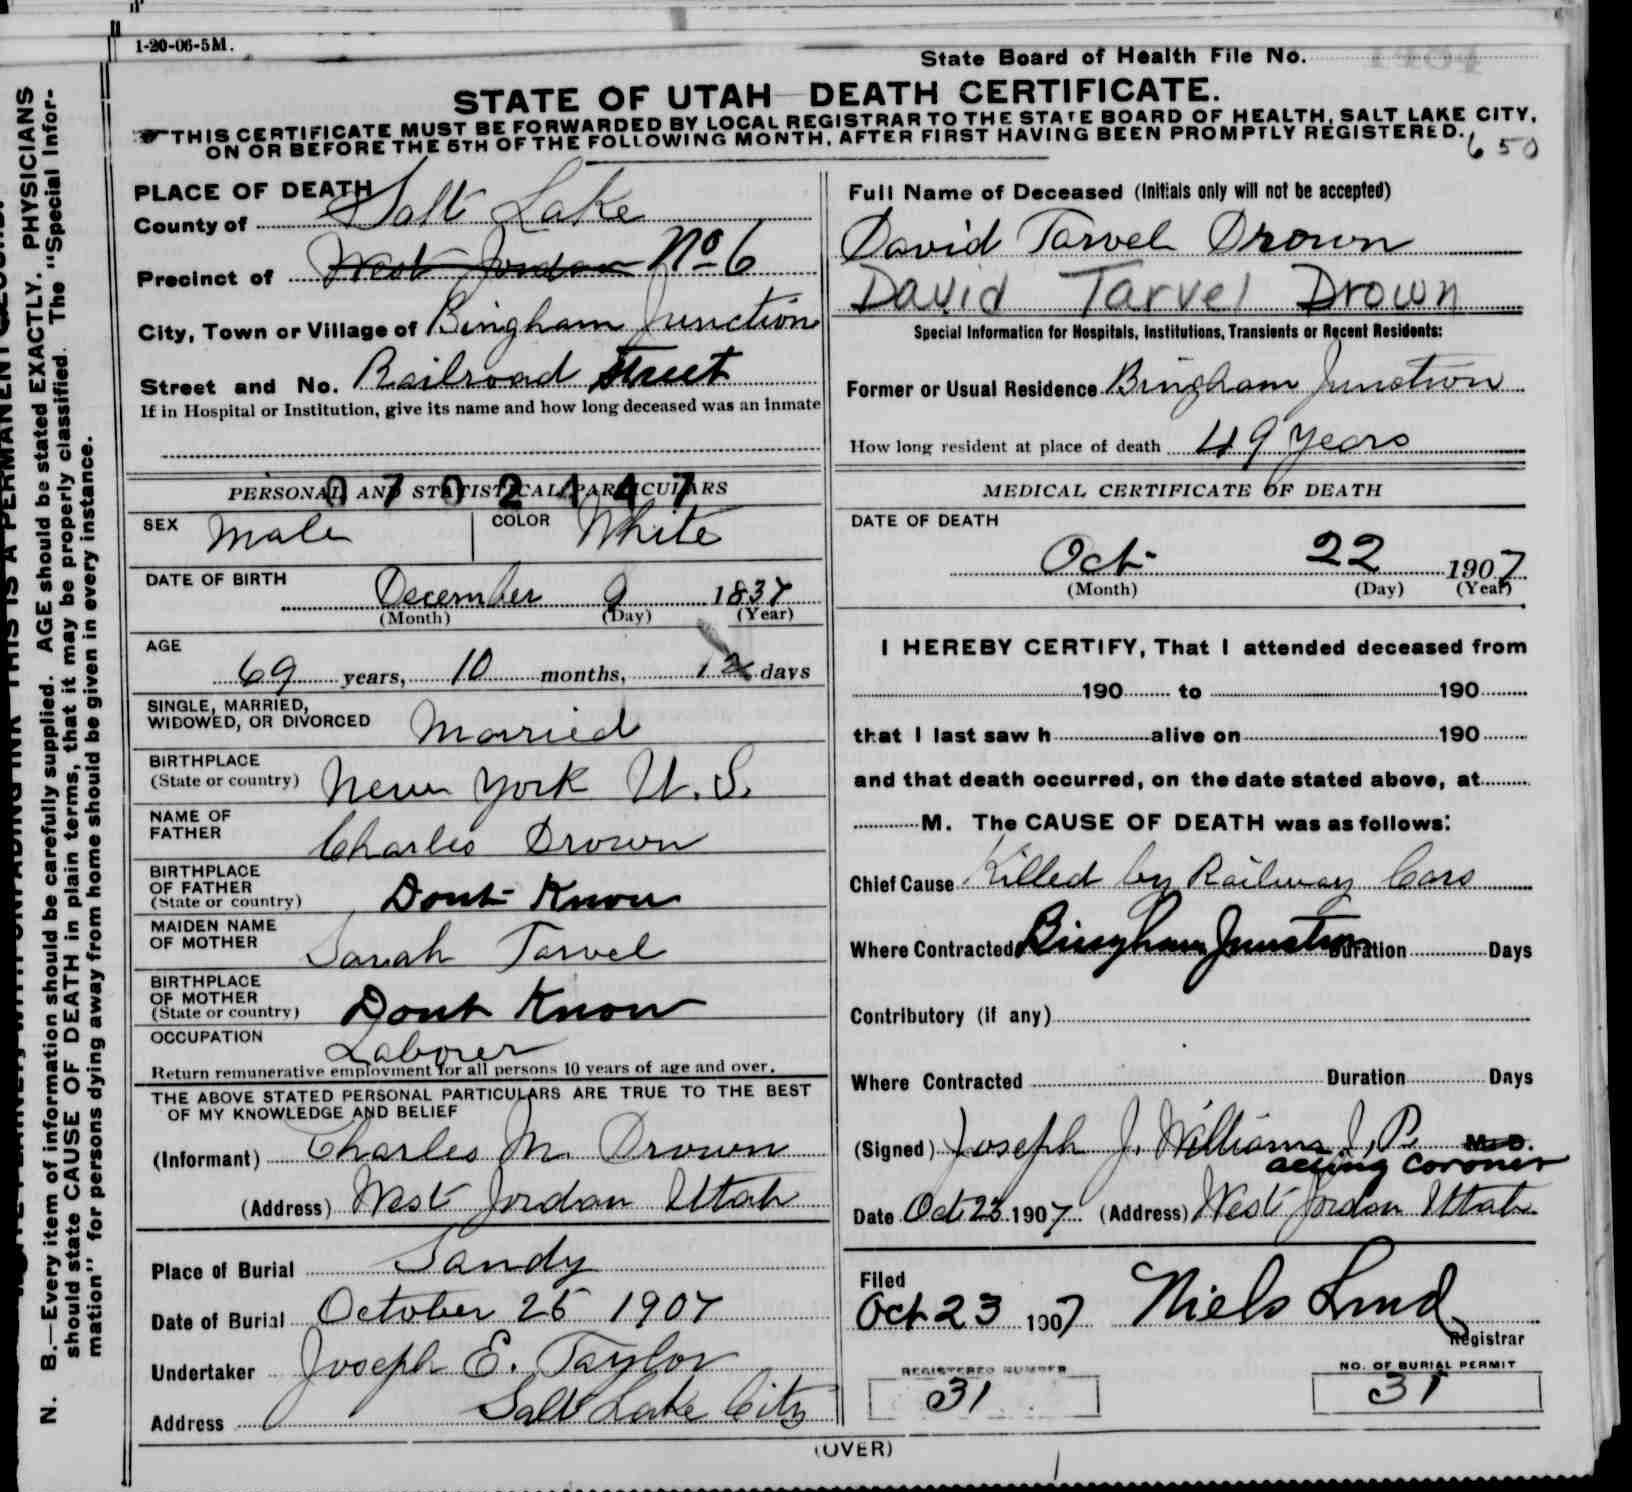 1-20-06-5M.
State Board of Health File No. 1484
STATE OF UTAH—DEATH CERTIFICATE.
THIS CERTIFICATE MUST BE FORWARDED BY LOCAL REGISTRAR TO THE STATE BOARD OF HEALTH, SALT LAKE CITY,
ON OR BEFORE THE 5TH OF THE FOLLOWING MONTH, AFTER FIRST HAVING BEEN PROMPTLY REGISTERED.
650
PLACE OF DEATH
County of Salt Lake
Precinct of West Jordan No 6
City, Town or Village of Bingham Junction
Street and No. Railroad Street
If in Hospital or Institution, give its name and how long deceased was an inmate
PERSONAL AND STATISTICAL PARTICULARS
0702447
SEX Male COLOR White
DATE OF BIRTH
December 9 1837
(Month) (Day) (Year)
AGE
69 years, 10 months, 12 days
SINGLE, MARRIED,
WIDOWED, OR DIVORCED Married
BIRTHPLACE
(State or country) New York U.S.
NAME OF
FATHER Charles Drown
BIRTHPLACE
OF FATHER
(State or country) Dont Know
MAIDEN NAME
OF MOTHER Sarah Tarvel
BIRTHPLACE
OF MOTHER
(State or country) Dont Know
OCCUPATION
Laborer
Return remunerative employment for all persons 10 years of age and over.
THE ABOVE STATED PERSONAL PARTICULARS ARE TRUE TO THE BEST
OF MY KNOWLEDGE AND BELIEF
(Informant) Charles M. Drown
(Address) West Jordan Utah
Place of Burial Sandy
Date of Burial October 25 1907
Undertaker Joseph E. Taylor
Address Salt Lake City
Full Name of Deceased (Initials only will not be accepted)
David Tarvel Drown
David Tarvel Drown
Special Information for Hospitals, Institutions, Transients or Recent Residents:
Former or Usual Residence Bingham Junction
How long resident at place of death 49 years
MEDICAL CERTIFICATE OF DEATH
DATE OF DEATH
Oct 22 1907
(Month) (Day) (Year)
I HEREBY CERTIFY, That I attended deceased from
190 to 190
that I last saw h alive on 190
and that death occurred, on the date stated above, at
M. The CAUSE OF DEATH was as follows:
Chief Cause Killed by Railway Cars
Where Contracted Bingham Junction Duration Days
Contributory (if any)
Where Contracted Duration Days
(Signed) Joseph J. Williams J.P. M.D.
acting Coroner
Date Oct 23 1907 (Address) West Jordan Utah
Filed
Oct 23 1907 Niels Lind
Registrar
REGISTERED NUMBER
31
NO. OF BURIAL PERMIT
31
(OVER)
THIS IS A PERMANENT
N. B.—Every item of information should be carefully supplied. AGE should be stated EXACTLY. PHYSICIANS
should state CAUSE OF DEATH in plain terms, that it may be properly classified. The "Special Infor-
mation" for persons dying away from home should be given in every instance.